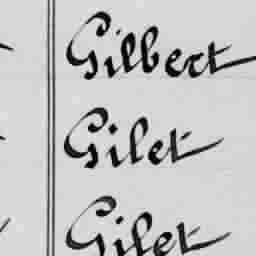 Gilbert
Gilet
Gilet